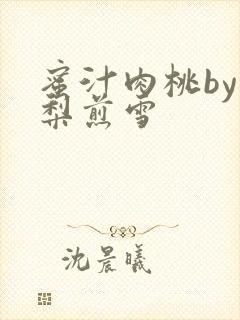 蜜汁肉桃by
梨煎雪
沈晨曦